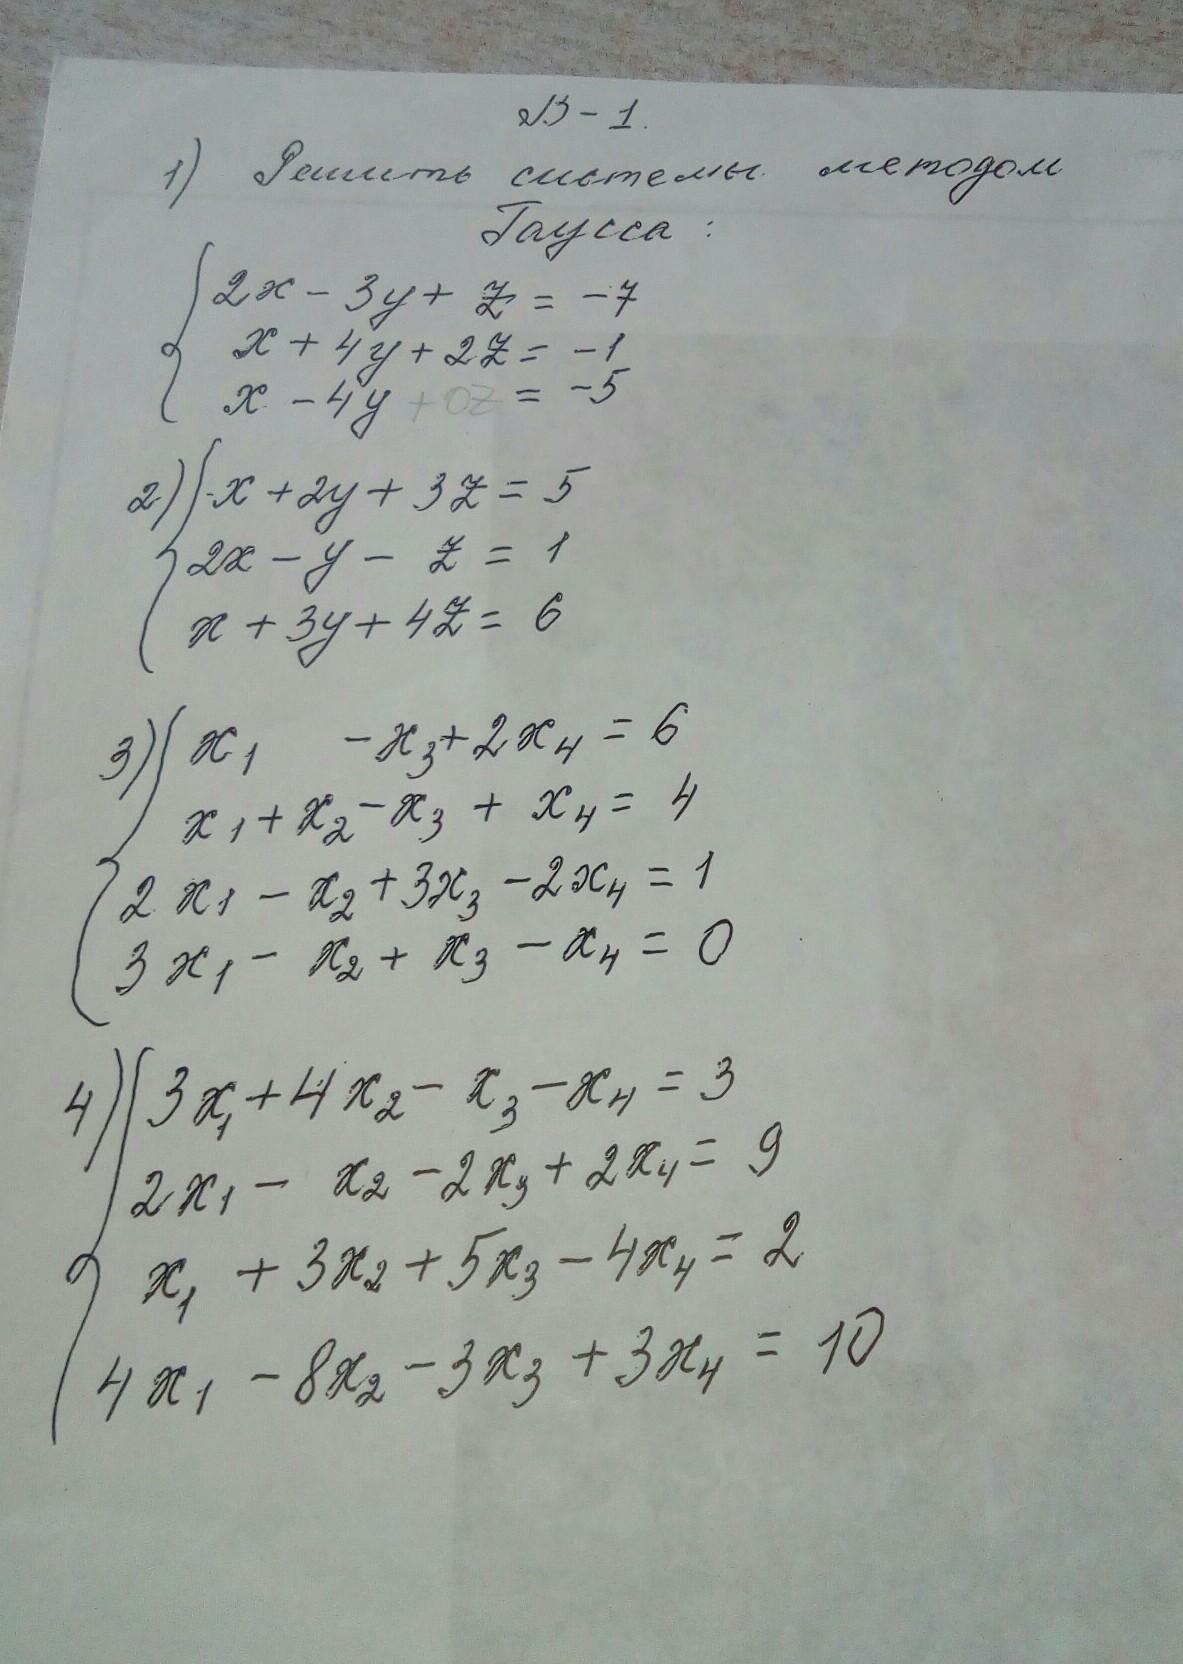 В-1.
1) Решить системы методом
Гаусса:
2x - 3y + z = -7
x + 4y + 2z = -1
x - 4y + 0z = -5
2) -x + 2y + 3z = 5
2x - y - z = 1
x + 3y + 4z = 6
3) x₁ - x₃ + 2x₄ = 6
x₁ + x₂ - x₃ + x₄ = 4
2x₁ - x₂ + 3x₃ - 2x₄ = 1
3x₁ - x₂ + x₃ - x₄ = 0
4) 3x₁ + 4x₂ - x₃ - x₄ = 3
2x₁ - x₂ - 2x₃ + 2x₄ = 9
x₁ + 3x₂ + 5x₃ - 4x₄ = 2
4x₁ - 8x₂ - 3x₃ + 3x₄ = 10